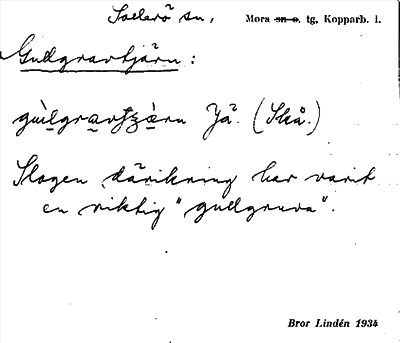 Sollerö sn, Mora sn o. tg, Kopparb. l.
Gullgravtjärn :
Jä. (Skå.)
Slogen däríkring har varit
en riktig "gullgruva".
Bror Lindén 1934